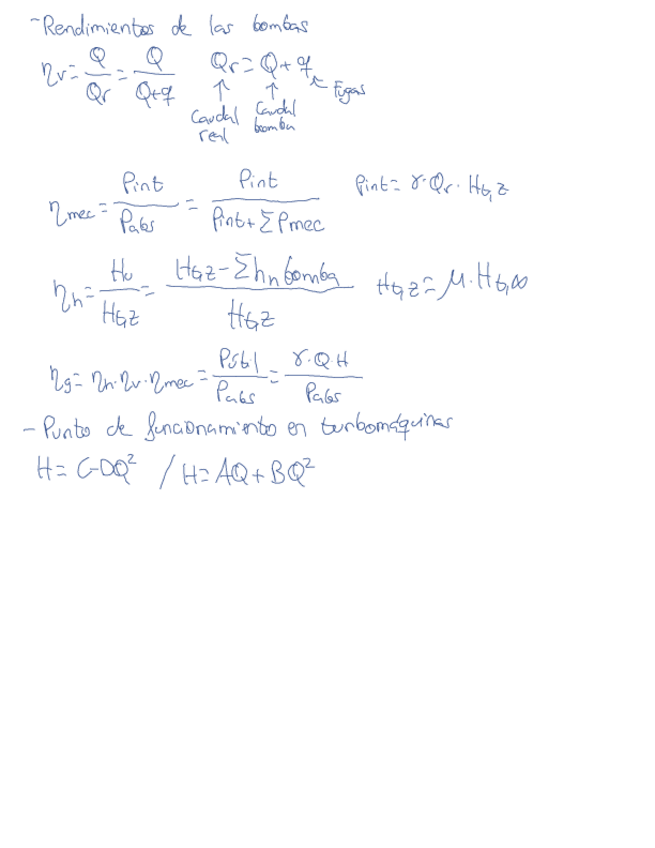 - Rendimientos de las bombas
ηv = Q/Qr = Q/(Q+q)   Qr = Q + q ← Fugas
↑ Caudal real   ↑ Caudal bomba
ηmec = Pint/Pabs = Pint/(Pint + ΣPmec)   Pint = γ·Qr·Ht,z
ηh = Hu/Ht,z = (Ht,z - Σhn bomba)/Ht,z   Ht,z = μ·Ht,∞
ηg = ηh·ηv·ηmec = Pútil/Pabs = γ·Q·H/Pabs
- Punto de funcionamiento en turbomáquinas
H = C-DQ² / H = AQ + BQ²